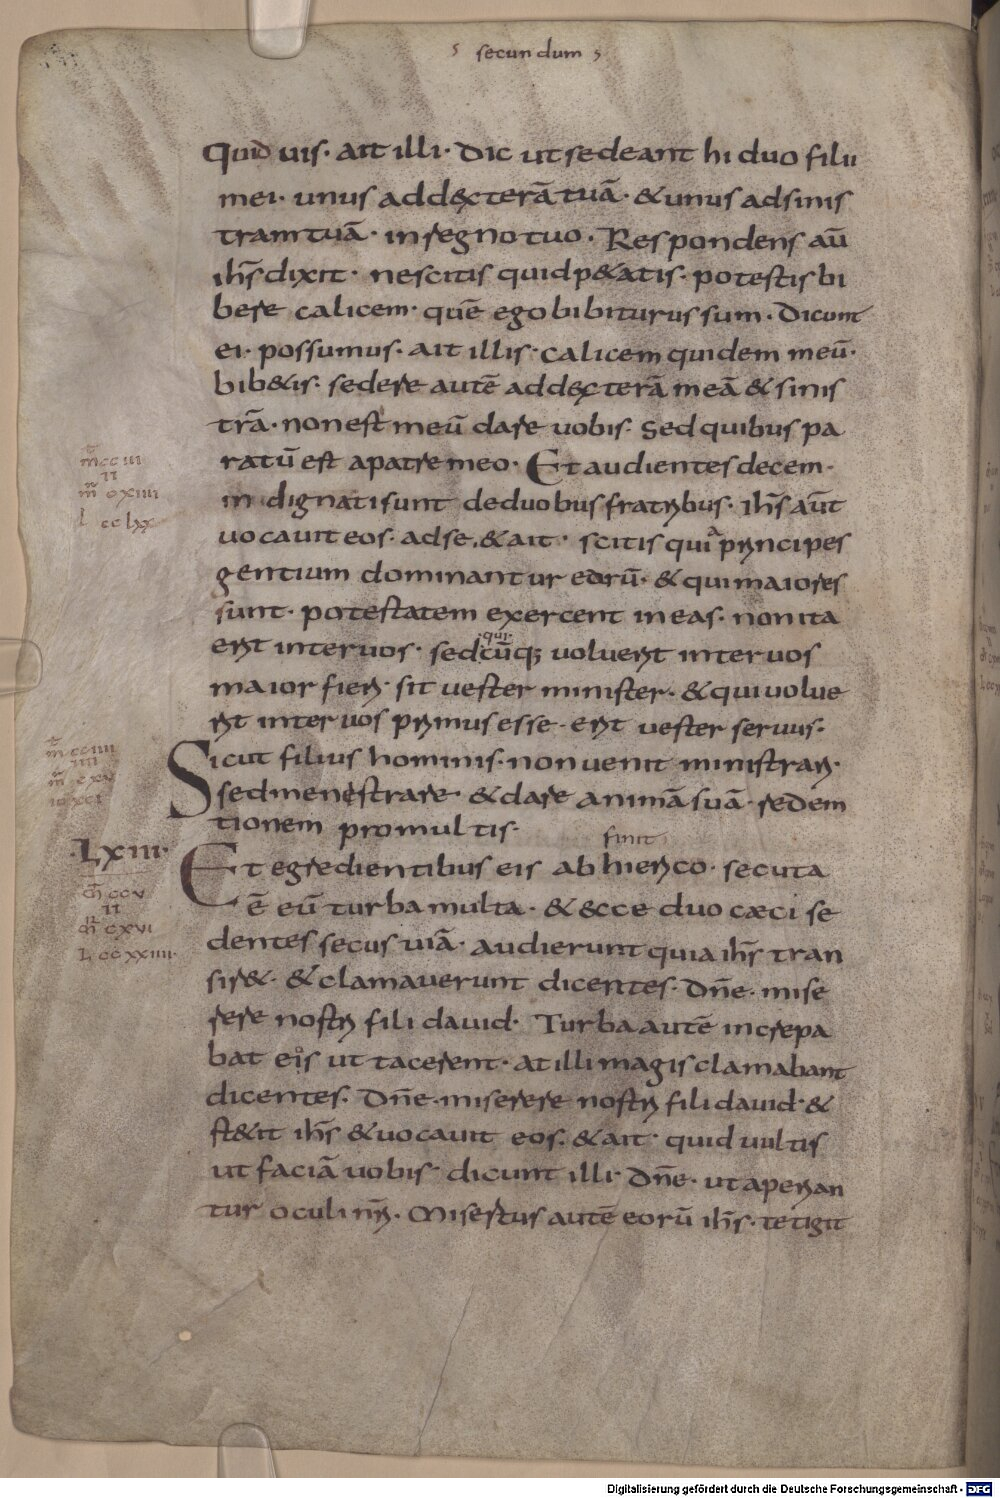 secundum
Quid uis. ait illi. Dic ut sedeant hi duo filii
mei. unus ad dexterā tuā. & unus ad sinis
tram tuā. in regno tuo. Respondens aū
ihs̄ dixit. nescitis quid p&atis. potestis bi
bere calicem. quē ego bibiturus sum. Dicunt
ei. possumus. ait illis. calicem quidem meū.
bib&is. sedere autē ad dexterā meā & sinis
trā. non est meū dare uobis. Sed quibus pa
ratū est a patre meo. Et audientes decem.
m̄ cciii
ii
m̄ cxiiii
l cclxx
indignati sunt de duobus fratribus. ihs̄ aūt
uocauit eos. ad se. & ait. scitis quia principes
gentium dominantur eorū. & qui maiores
sunt. potestatem exercent in eas. non ita
qui
erit inter uos. sed cūq; voluerit inter uos
maior fieri. sit uester minister. & qui uolue
rit inter uos primus esse. erit uester seruus.
Sicut filius hominis. non uenit ministrari.
m̄ cciiii
iiii
m̄ cxv
sed menistrare. & dare animā suā. redem
tionem pro multis.
finit
·Lxiii·
Et egredientibus eis ab hierico. secuta
m̄ ccv
ii
m̄ cxvi
L ccxxiiii.
ē eū turba multa. & ecce duo cæci se
dentes secus uiā. audierunt quia ihs̄ tran
sir&. & clamauerunt dicentes. Dn̄e. mise
rere nostri fili dauid. Turba autē increpa
bat eis ut tacerent. at illi magis clamabant
dicentes. Dn̄e. miserere nostri fili dauid. &
st&it ihs̄ & uocauit eos. & ait. quid uultis
ut faciā uobis. dicunt illi. Dn̄e. ut aperian
tur oculi nr̄i. Misertus autē eorū ihs̄. tetigit
Digitalisierung gefördert durch die Deutsche Forschungsgemeinschaft - DFG